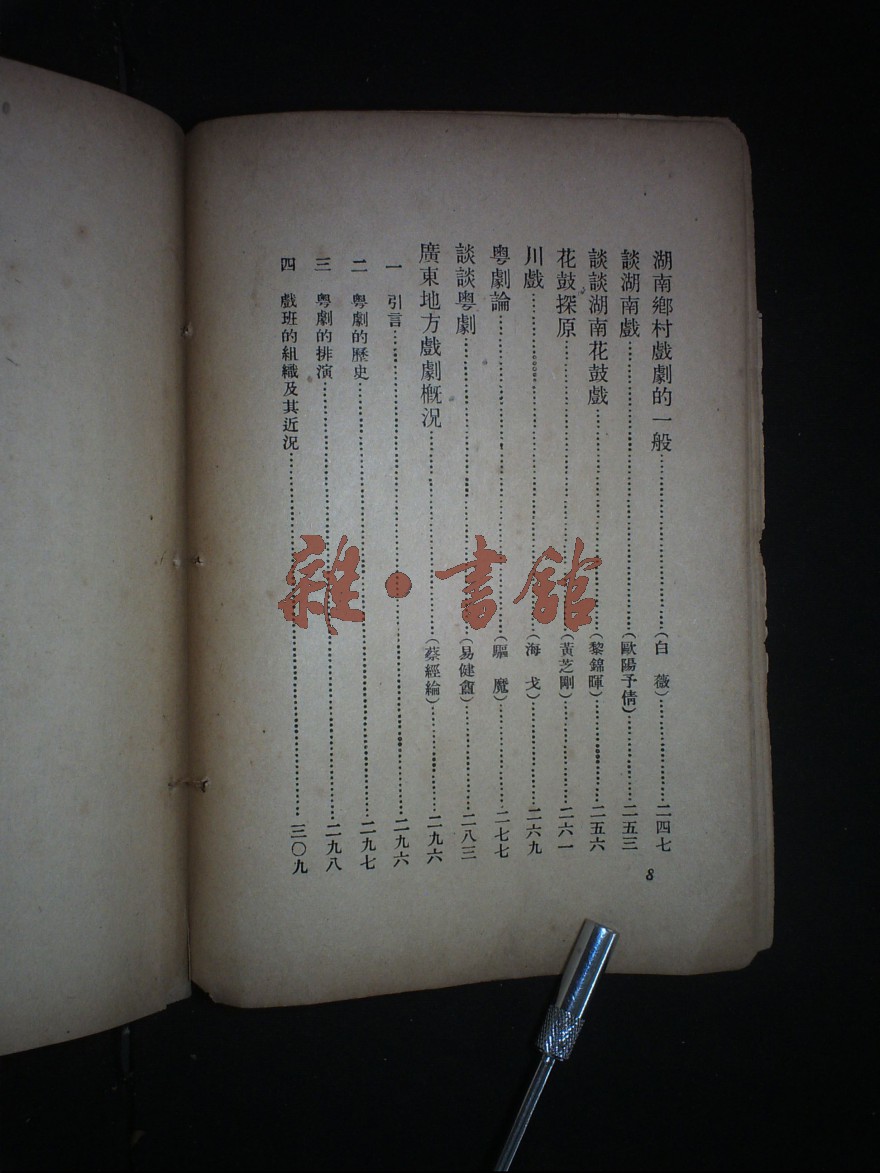 湖南鄉村戲劇的一般……(白薇)……二四七
談湖南戲……(歐陽予倩)……二五三
談談湖南花鼓戲……(黎錦暉)……二五六
花鼓探原……(黃芝剛)……二六一
川戲……(海戈)……二六九
粵劇論……(驅魔)……二七七
談談粵劇……(易健盦)……二八三
廣東地方戲劇概況……(蔡經綸)……二九六
一 引言……二九六
二 粵劇的歷史……二九七
三 粵劇的排演……二九八
四 戲班的組織及其近況……三〇九
8
雜·書館